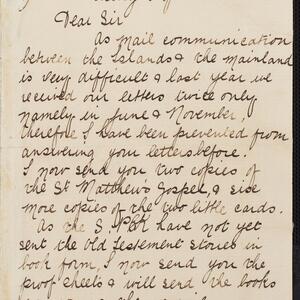 Dear Sir
As mail communication
between the Islands & the mainland
is very difficult & last year we
recieved our letters twice only
namely in June & November,
therefore I have been prevented from
answering your letters before.
I now send you two copies of
the St Matthew's Gospel, & sise
more copies of the two little cards.
As the S.P.C.K. have not yet
sent the Old Testement Stories in
book form, I now send you the
proof sheets & will send the books